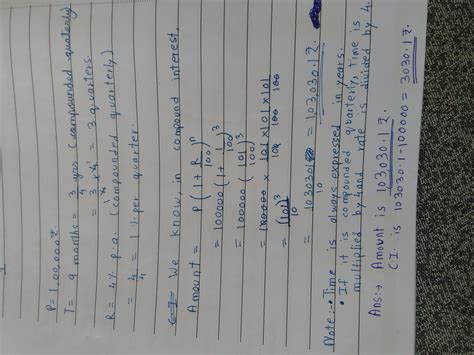 P= 1,00,000₹
T= 9 months = 3/4 yrs (compounded quaterly)
= 3/4 x 4 = 3 quarters.
R= 4% p.a. (compounded quarterly)
= 4/4 = 1 % per quarter.
C.I= We know in compound interest,
Amount = P(1 + R/100)^n
= 100000 (1 + 1/100)^3
= 100000 (101/100)^3
= 100000 x 101/100 x 101/100 x 101/100
= (101)^3/10
= 1030301/10 = 103,030.1₹.
Note:→ • Time is always expressed in years.
• If it is compounded quarterly, time is
multiplied by 4 and rate is divided by 4.
Ans:→ Amount is 103030.1₹.
CI is 103030.1-100000 = 3030.1₹